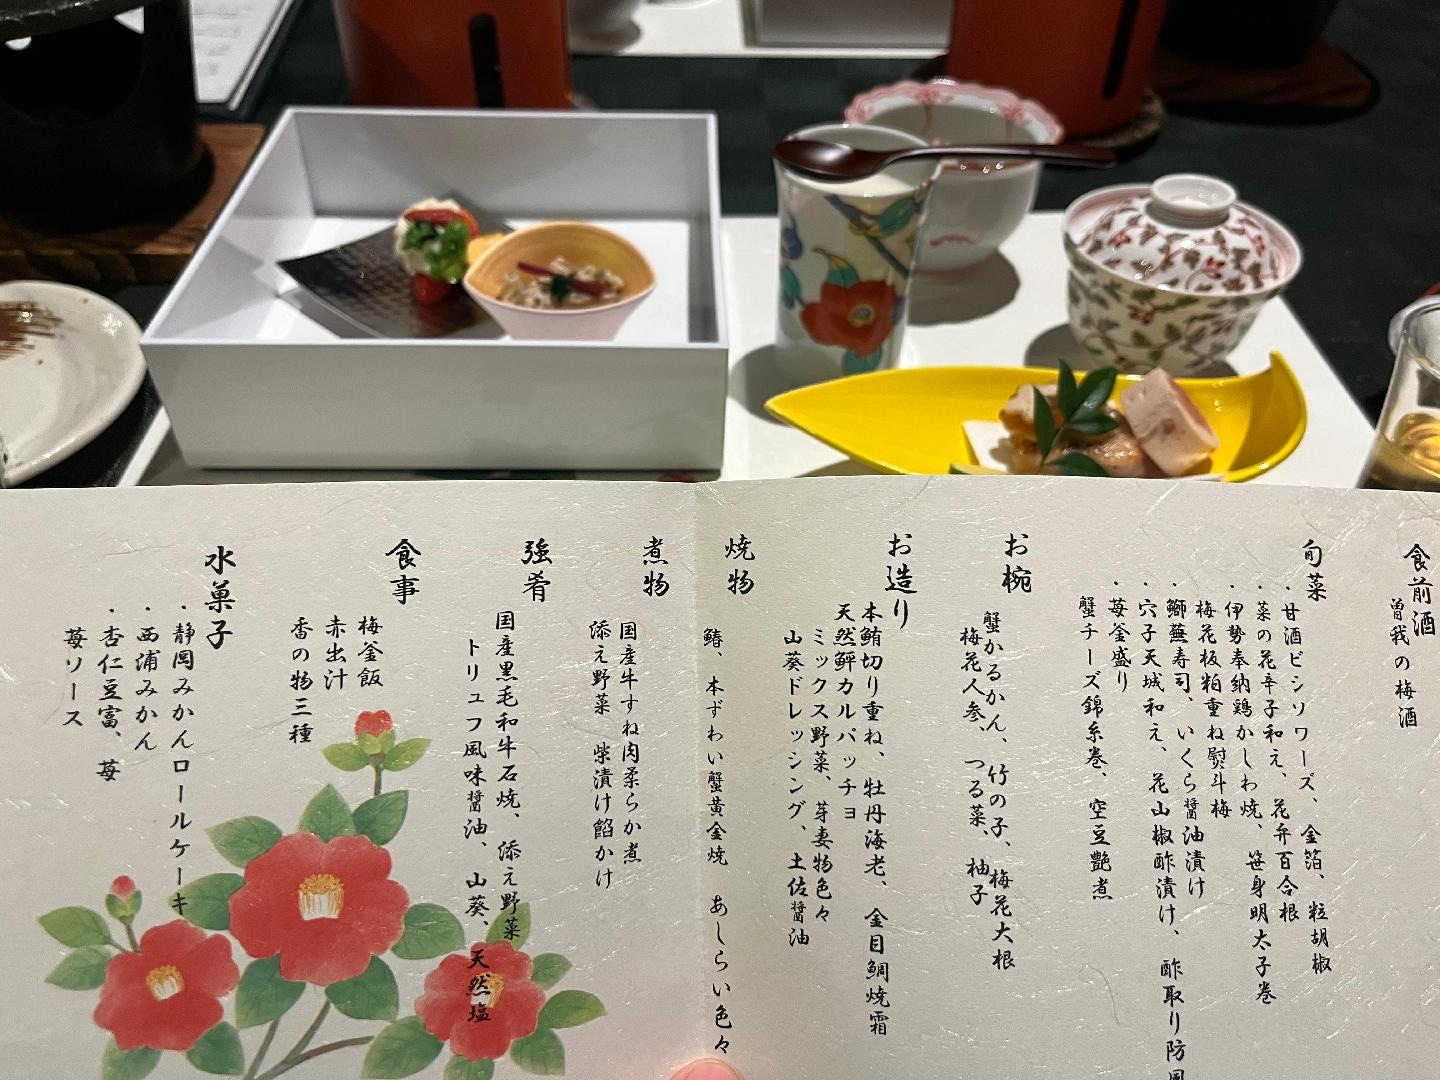 食前酒
曽我の梅酒
旬菜
・甘酒ビシソワーズ、金箔、粒胡椒
・菜の花辛子和え、花弁百合根
・伊勢奉納鶏かしわ焼、笹身明太子巻
梅花板粕重ね熨斗梅
・鰤蕪寿司、いくら醤油漬け
・穴子天城和え、花山椒酢漬け、酢取り防風
・苺釜盛り
蟹チーズ錦糸巻、空豆艶煮
お椀
蟹かるかん、竹の子、梅花大根
梅花人参、つる菜、柚子
お造り
本鮪切り重ね、牡丹海老、金目鯛焼霜
天然鮃カルパッチョ
ミックス野菜、芽妻物色々
山葵ドレッシング、土佐醤油
焼物
鰆、本ずわい蟹黄金焼 あしらい色々
煮物
国産牛すね肉柔らか煮
添え野菜 柴漬け餡かけ
強肴
国産黒毛和牛石焼、添え野菜
トリュフ風味醤油、山葵、天然塩
食事
梅釜飯
赤出汁
香の物三種
水菓子
・静岡みかんロールケーキ
・西浦みかん
・杏仁豆富、苺
苺ソース